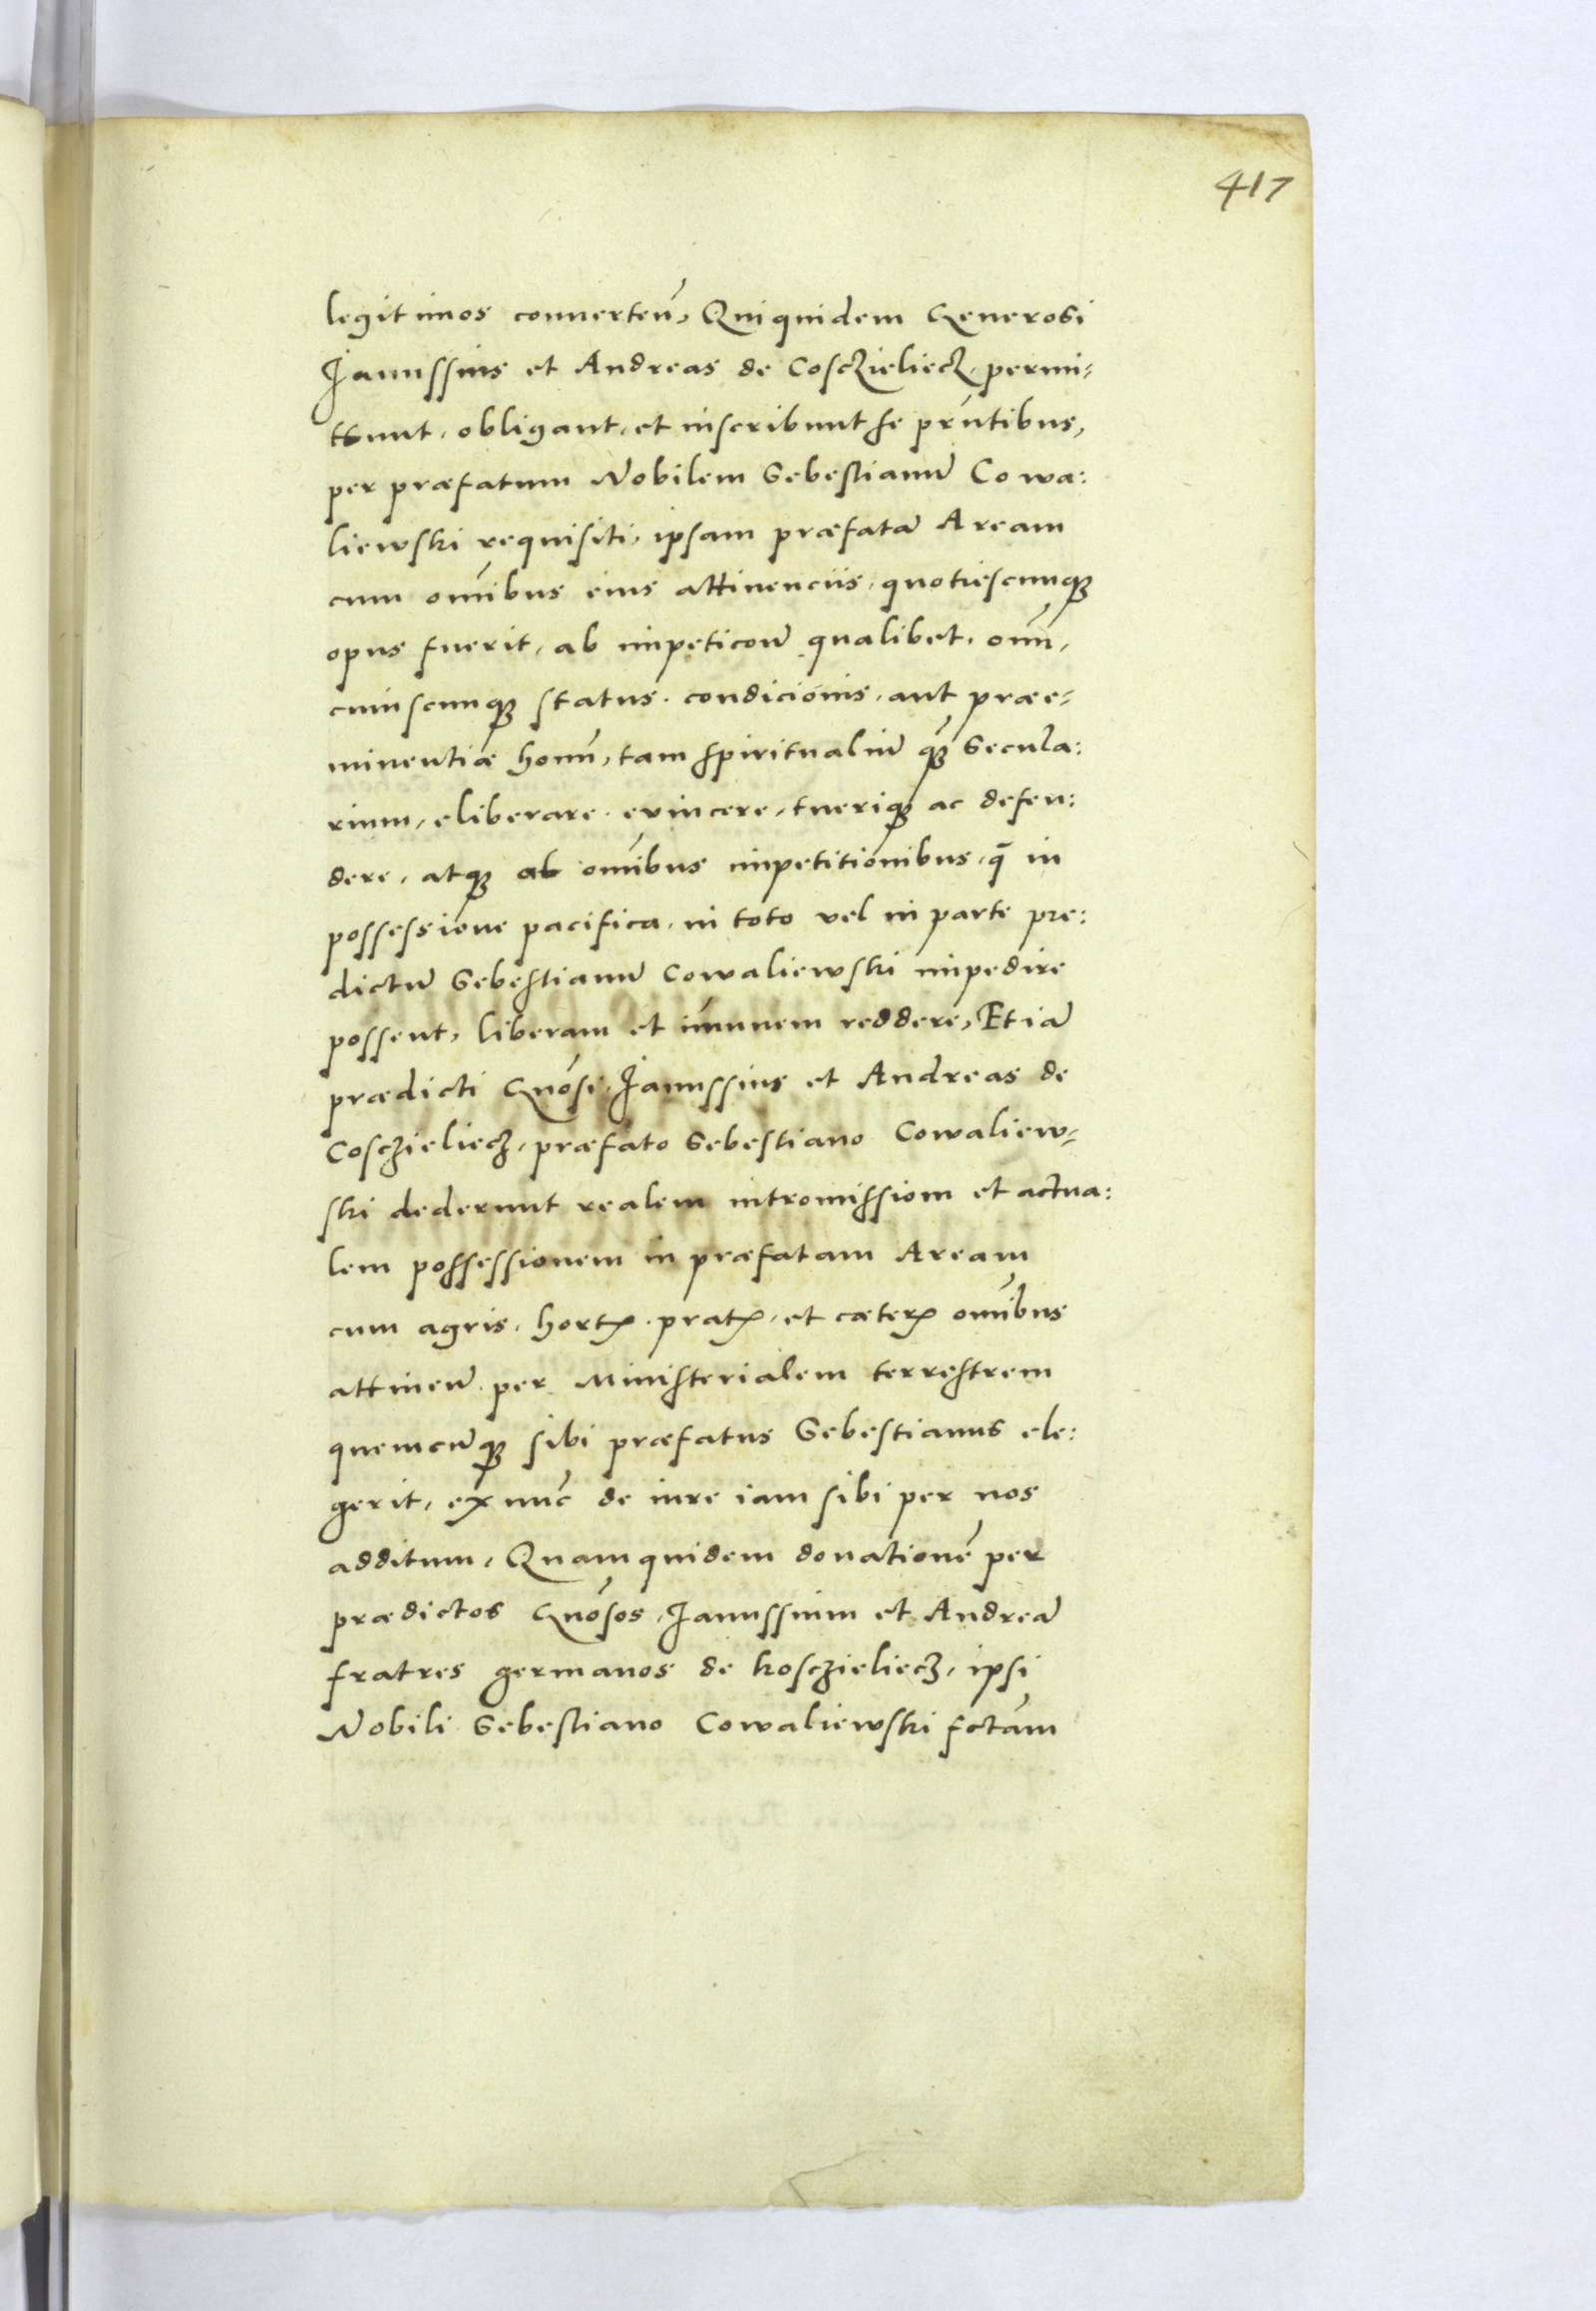 417
legitimos conuerteñ, Qui quidem Generosi
Janussius et Andreas de Cosczieliecz, permi-
ttunt, obligant, et inscribunt se pñtibus,
per præfatum Nobilem Sebestianū Cowa:
liewski requisiti, ipsam præfatā Aream
cum om̃ibus eius attinenciis, quotiescunq3
opus fuerit, ab impeticoñ qualibet, oım̃,
cuiuscunq3 status, condicionis, aut præe-
minentiæ hoım̃, tam spiritualiū q̃3 Secula:
rium, eliberare, euincere, tueriq3 ac defen:
dere, atq3 ab om̃ibus impetitionibus, q̄ in
possessione pacifica, in toto vel in parte pre:
dictū Sebestianū Cowaliewski impedire
possent, liberam et im̃unem reddere, Etiā
prædicti Gnõsi, Janussius et Andreas de
Cosczieliecz, præfato Sebestiano Cowaliew-
ski dederunt realem intromissiom et actua:
lem possessionem in præfatam Aream
cum agris, hortꝭ, pratꝭ, et cæterꝭ om̃ibus
attineñ, per Ministerialem terrestrem
quemcūq3 sibi præfatus Sebestianus ele:
gerit, ex nũc de iure iam sibi per nos
additum, Quam quidem donationē per
prædictos Gnõsos, Janussium et Andreā
fratres germanos de Kosczieliecz, ipsi
Nobili Sebestiano Cowaliewski fctãm